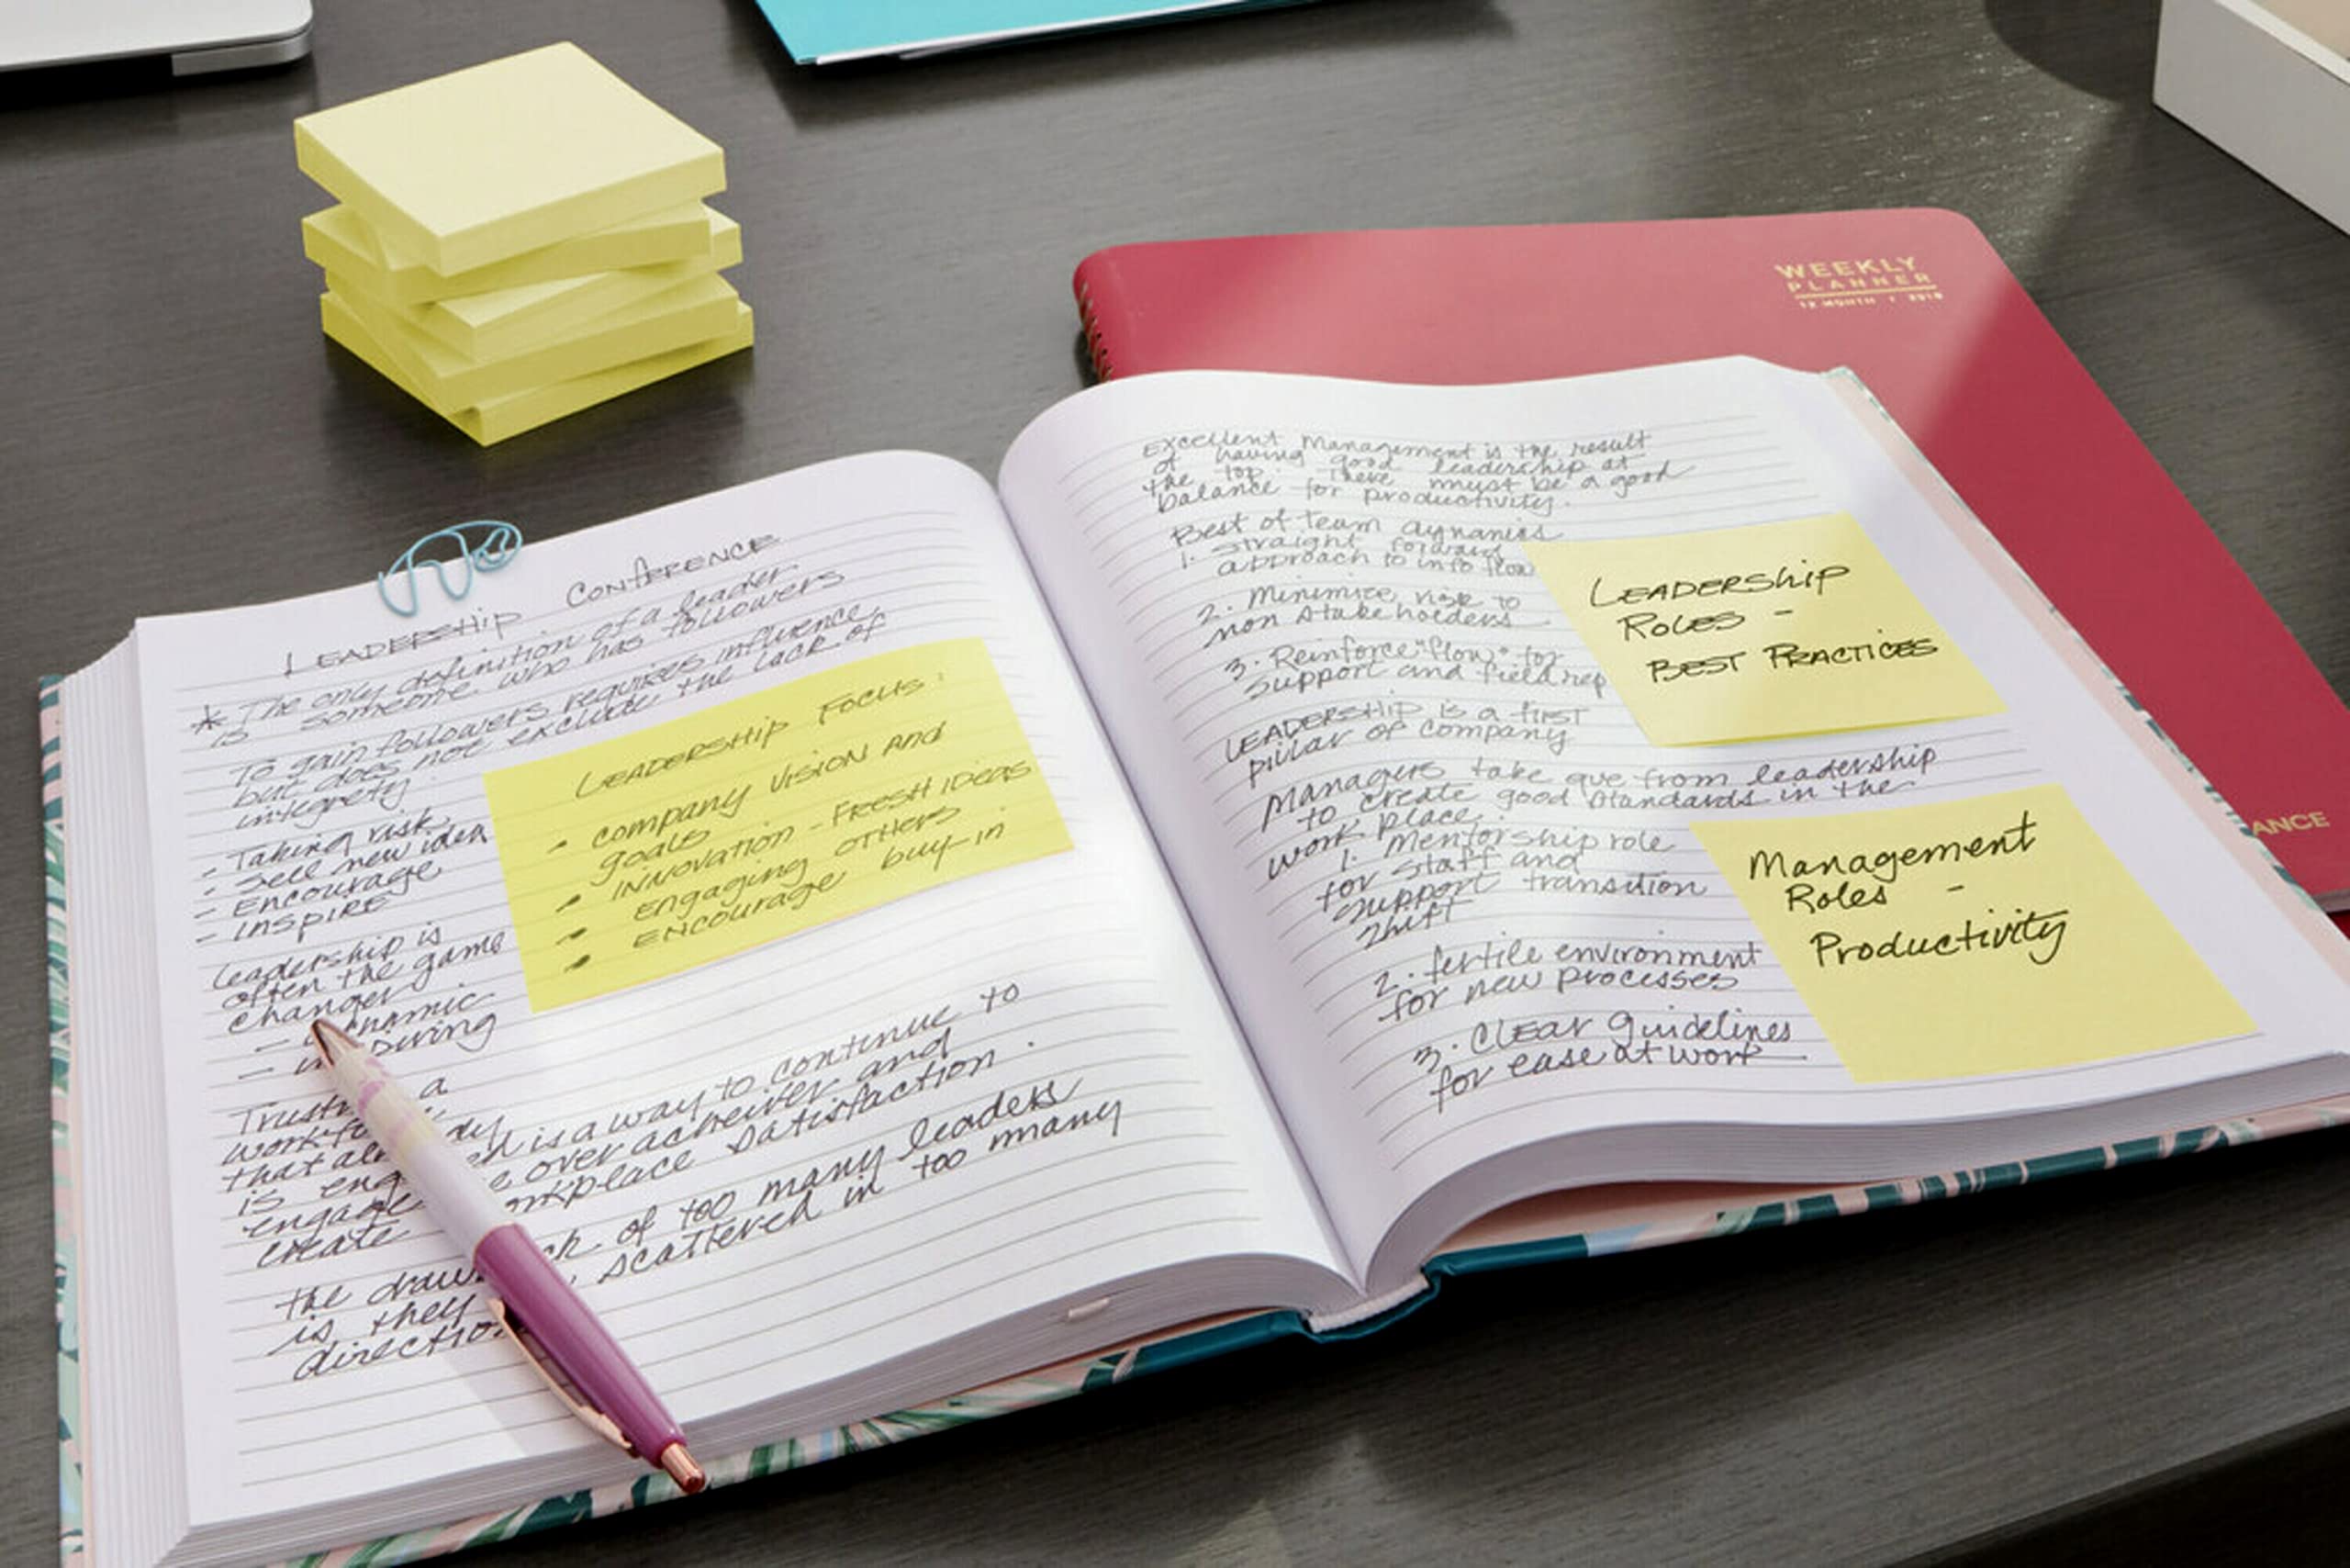 WEEKLY
PLANNER
12 MONTH
ANCE
LEADERSHIP CONFERENCE
* The only definition of a leader
is someone who has followers
To gain followers requires influence
but does not exclude the lack of
integrety
- Taking risk
- Sell new idea
- Encourage
- INSPIRE
Leadership is
often the game
changer
LEADERSHIP FOCUS:
- company VISION AND
goals
- INNOVATION - FRESH IDEAS
- engaging OTHERS
- ENCOURAGE buy-in
is a way to continue to
over achreiver and
create workplace satisfaction.
the of too many leaders
is they scattered in too many
Excellent Management is the result
of having good leadership at
the top. There must be a good
balance for productivity.
Best of team dynamics
1. Straight forward
approach to info flow
2. Minimize risk to
non stakeholders
3. Reinforce "flow" for
support and field rep
LEADERSHIP is a first
pillar of company
Managers take que from leadership
to create good standards in the
work place
1. Mentorship role
for staff and
support transition
shift
2. fertile environment
for new processes
3. CLEAR guidelines
for ease at work
LEADERSHIP
ROLES -
BEST PRACTICES
Management
Roles -
Productivity